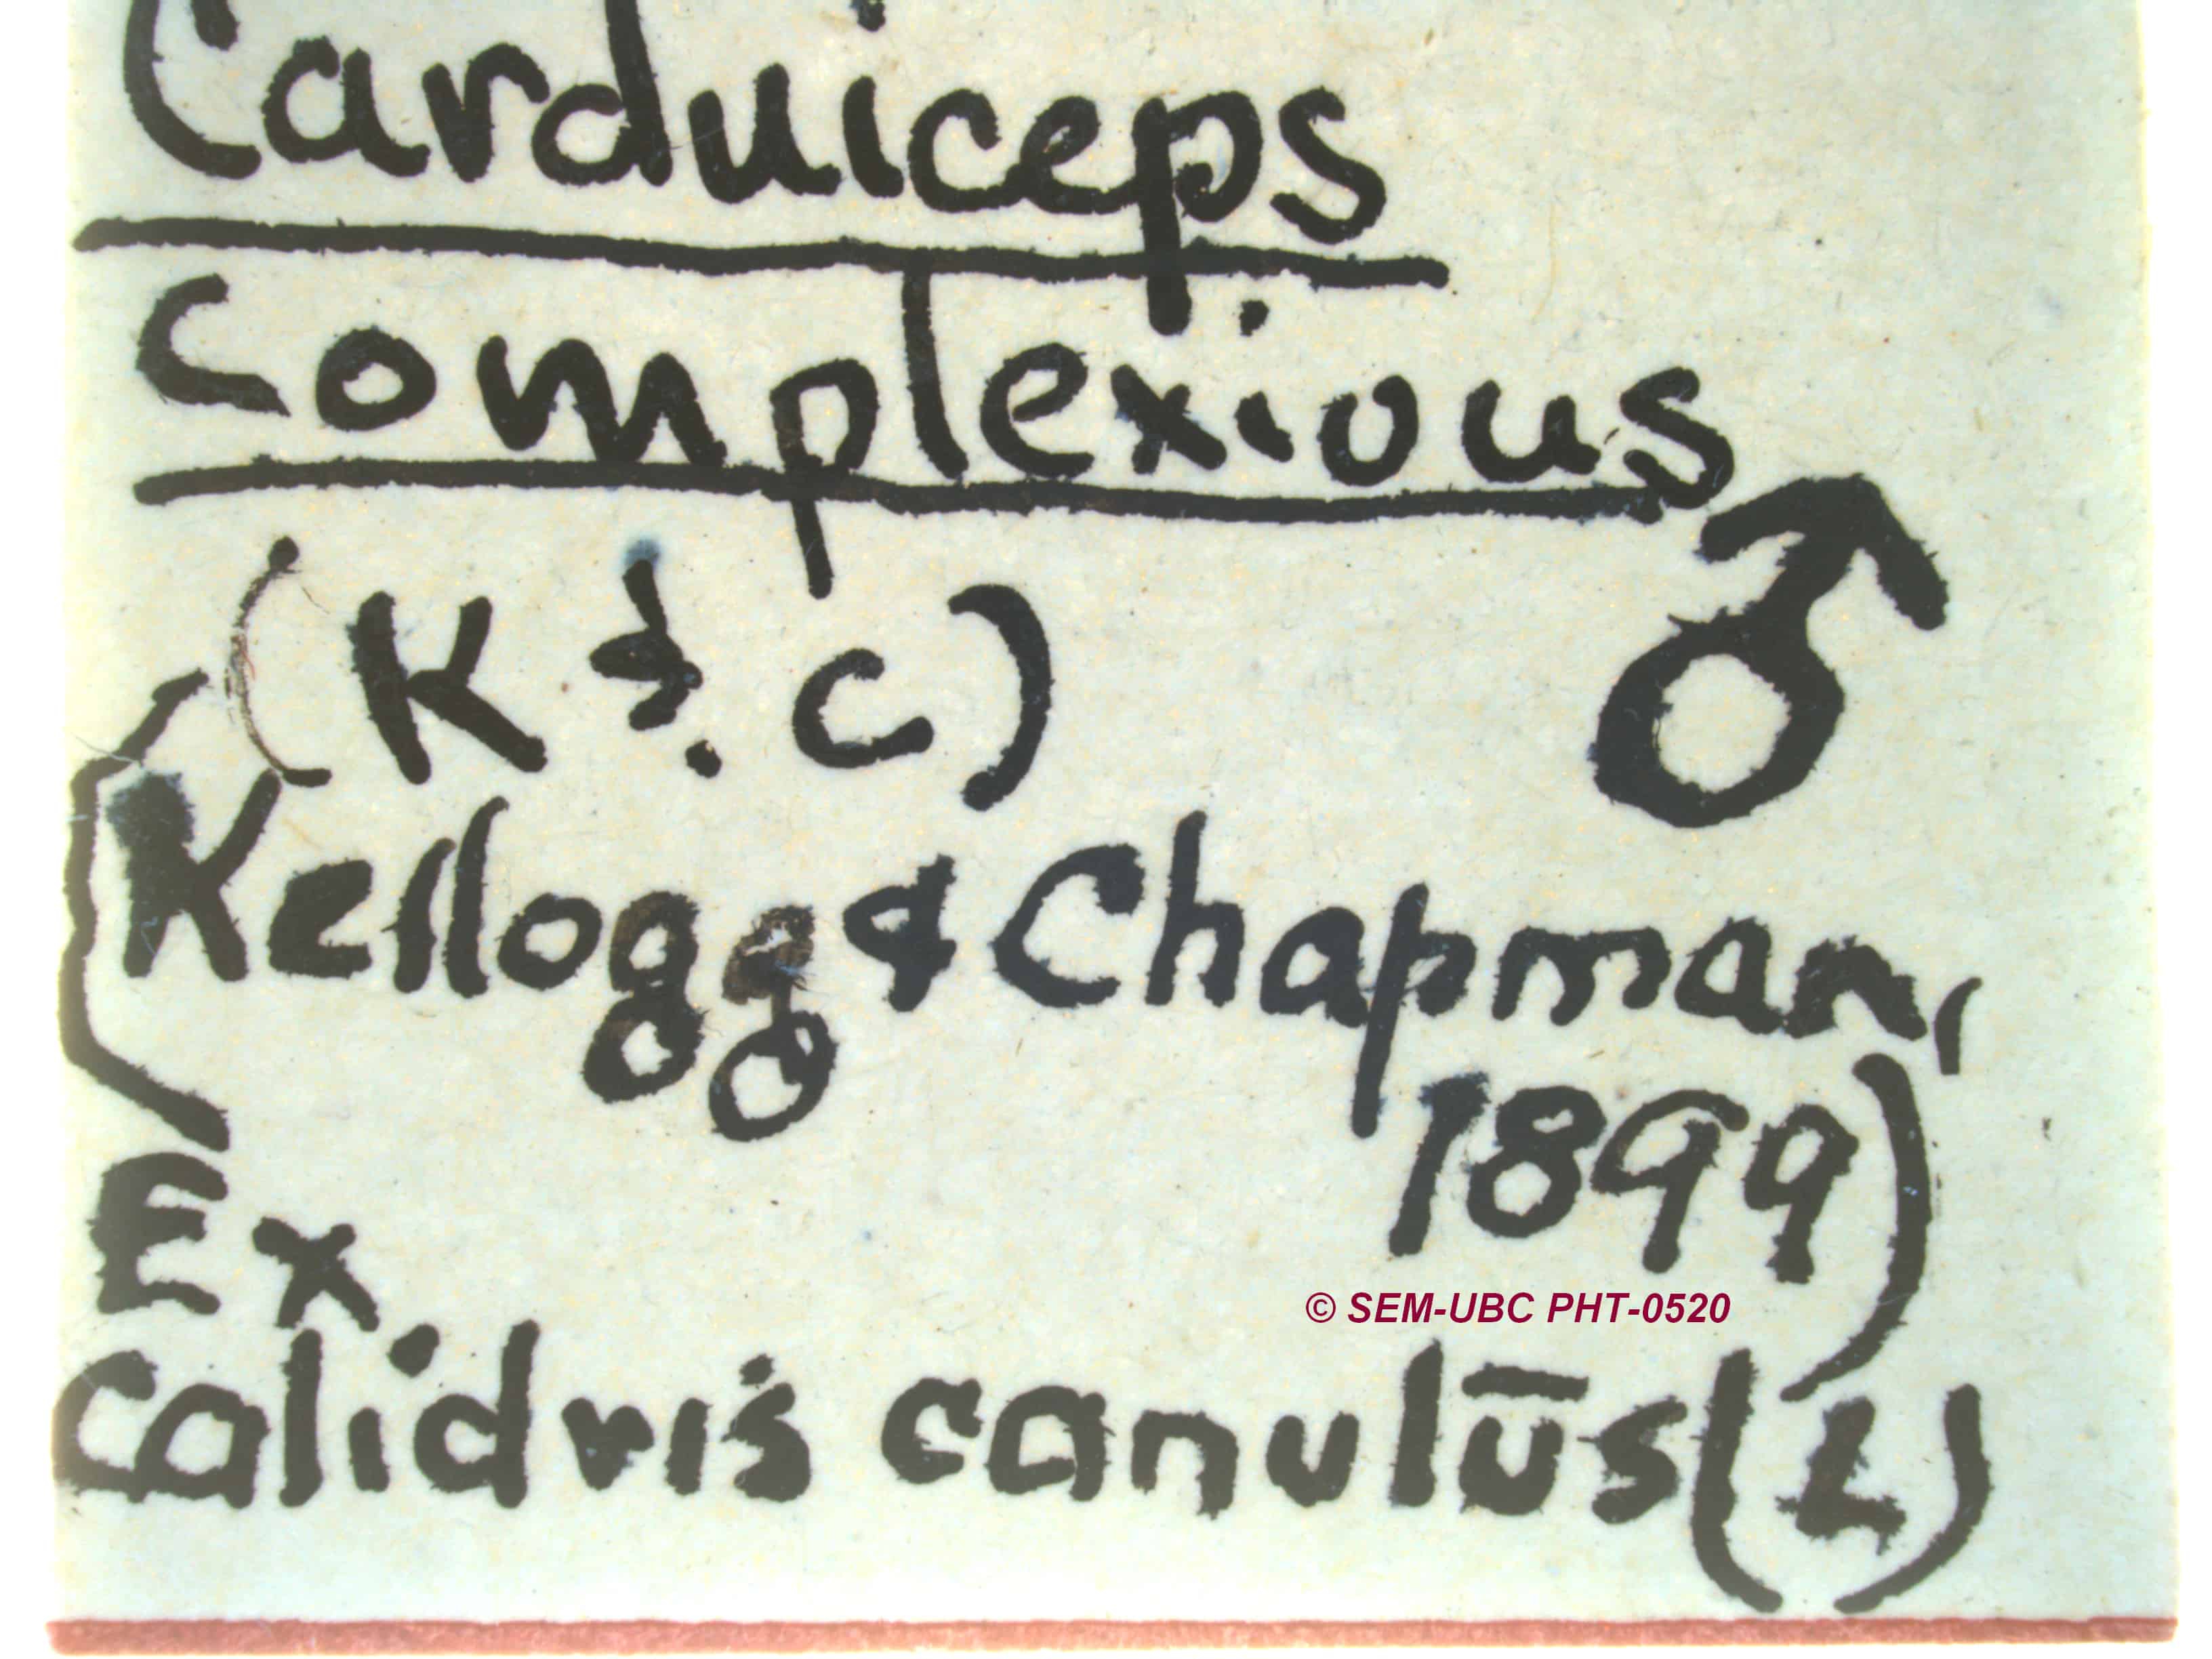 Carduiceps
complexious
(K & C) ♂
(Kellogg & Chapman,
1899)
Ex
© SEM-UBC PHT-0520
calidris canulūs (L)